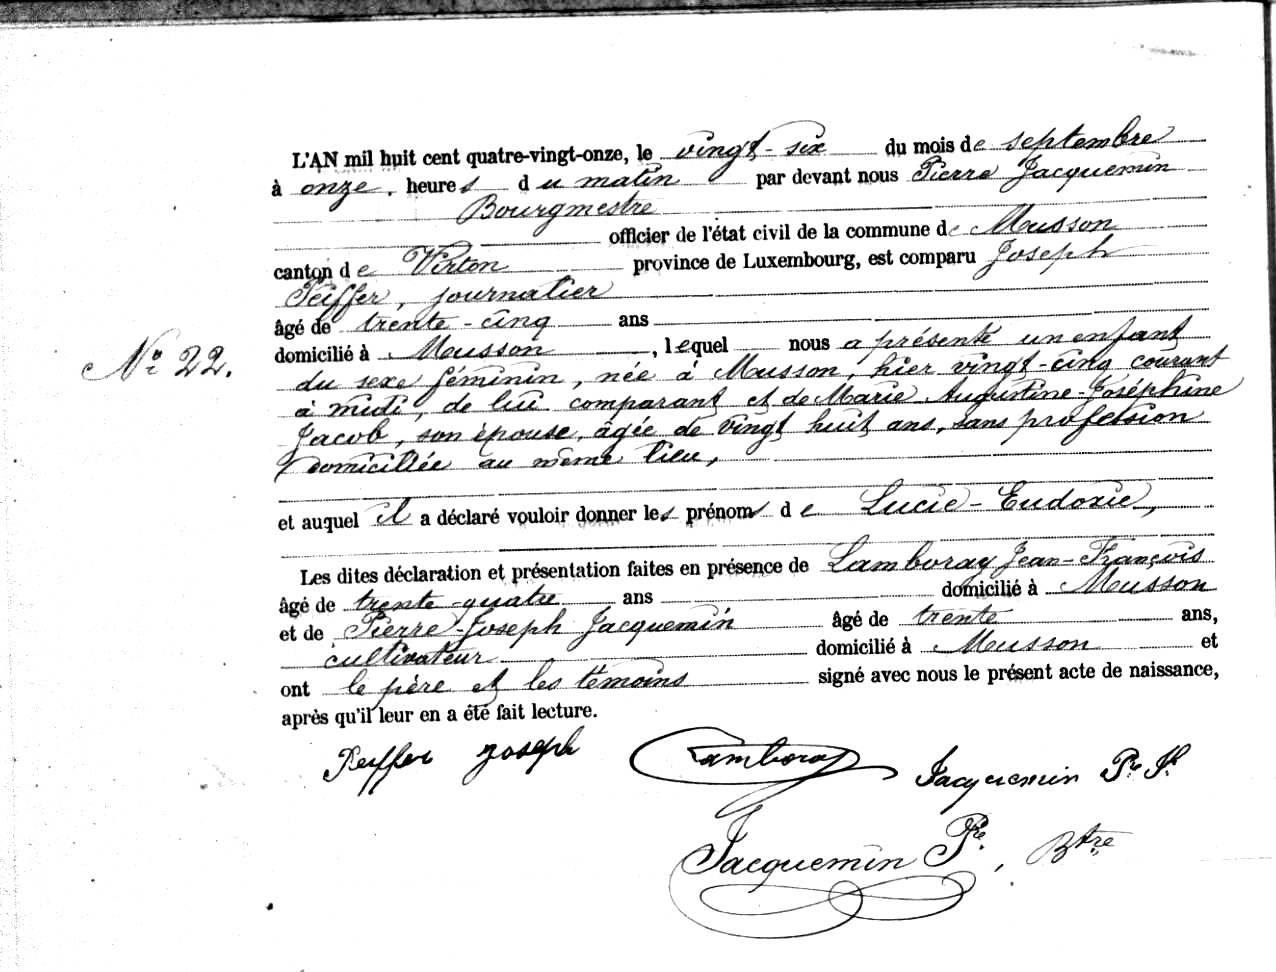 L'AN mil huit cent quatre-vingt-onze, le vingt-six du mois de septembre
à onze heures du matin par devant nous Pierre Jacquemin
Bourgmestre
officier de l'état civil de la commune de Musson
canton de Virton province de Luxembourg, est comparu Joseph
Peiffer, journalier
âgé de trente-cinq ans
domicilié à Musson, lequel nous a présenté un enfant
N° 22.
du sexe féminin, née à Musson, hier vingt-cinq courant
à midi, de lui comparant et de Marie Augustine-Joséphine
Jacob, son épouse, âgée de vingt huit ans, sans profession
domiciliée au même lieu,
et auquel il a déclaré vouloir donner les prénoms de Lucie-Eudoxie,
Les dites déclaration et présentation faites en présence de Lamboray Jean-François
âgé de trente-quatre ans domicilié à Musson
et de Pierre-Joseph Jacquemin âgé de trente ans,
cultivateur domicilié à Musson et
ont le père et les témoins signé avec nous le présent acte de naissance,
après qu'il leur en a été fait lecture.
Peiffer Joseph Lamboray Jacquemin Pre Jh
Jacquemin Pre, Btre